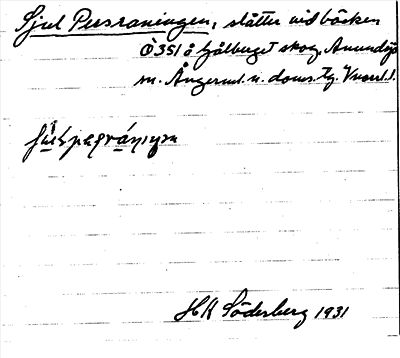 Sjul Persraningen, slåtter vid bäcken
Ö 351 å Gålbuget skog, Anundsjö
m. Ångerml. n. doms. tg. Vnorrl. l.
HK Söderberg 1931